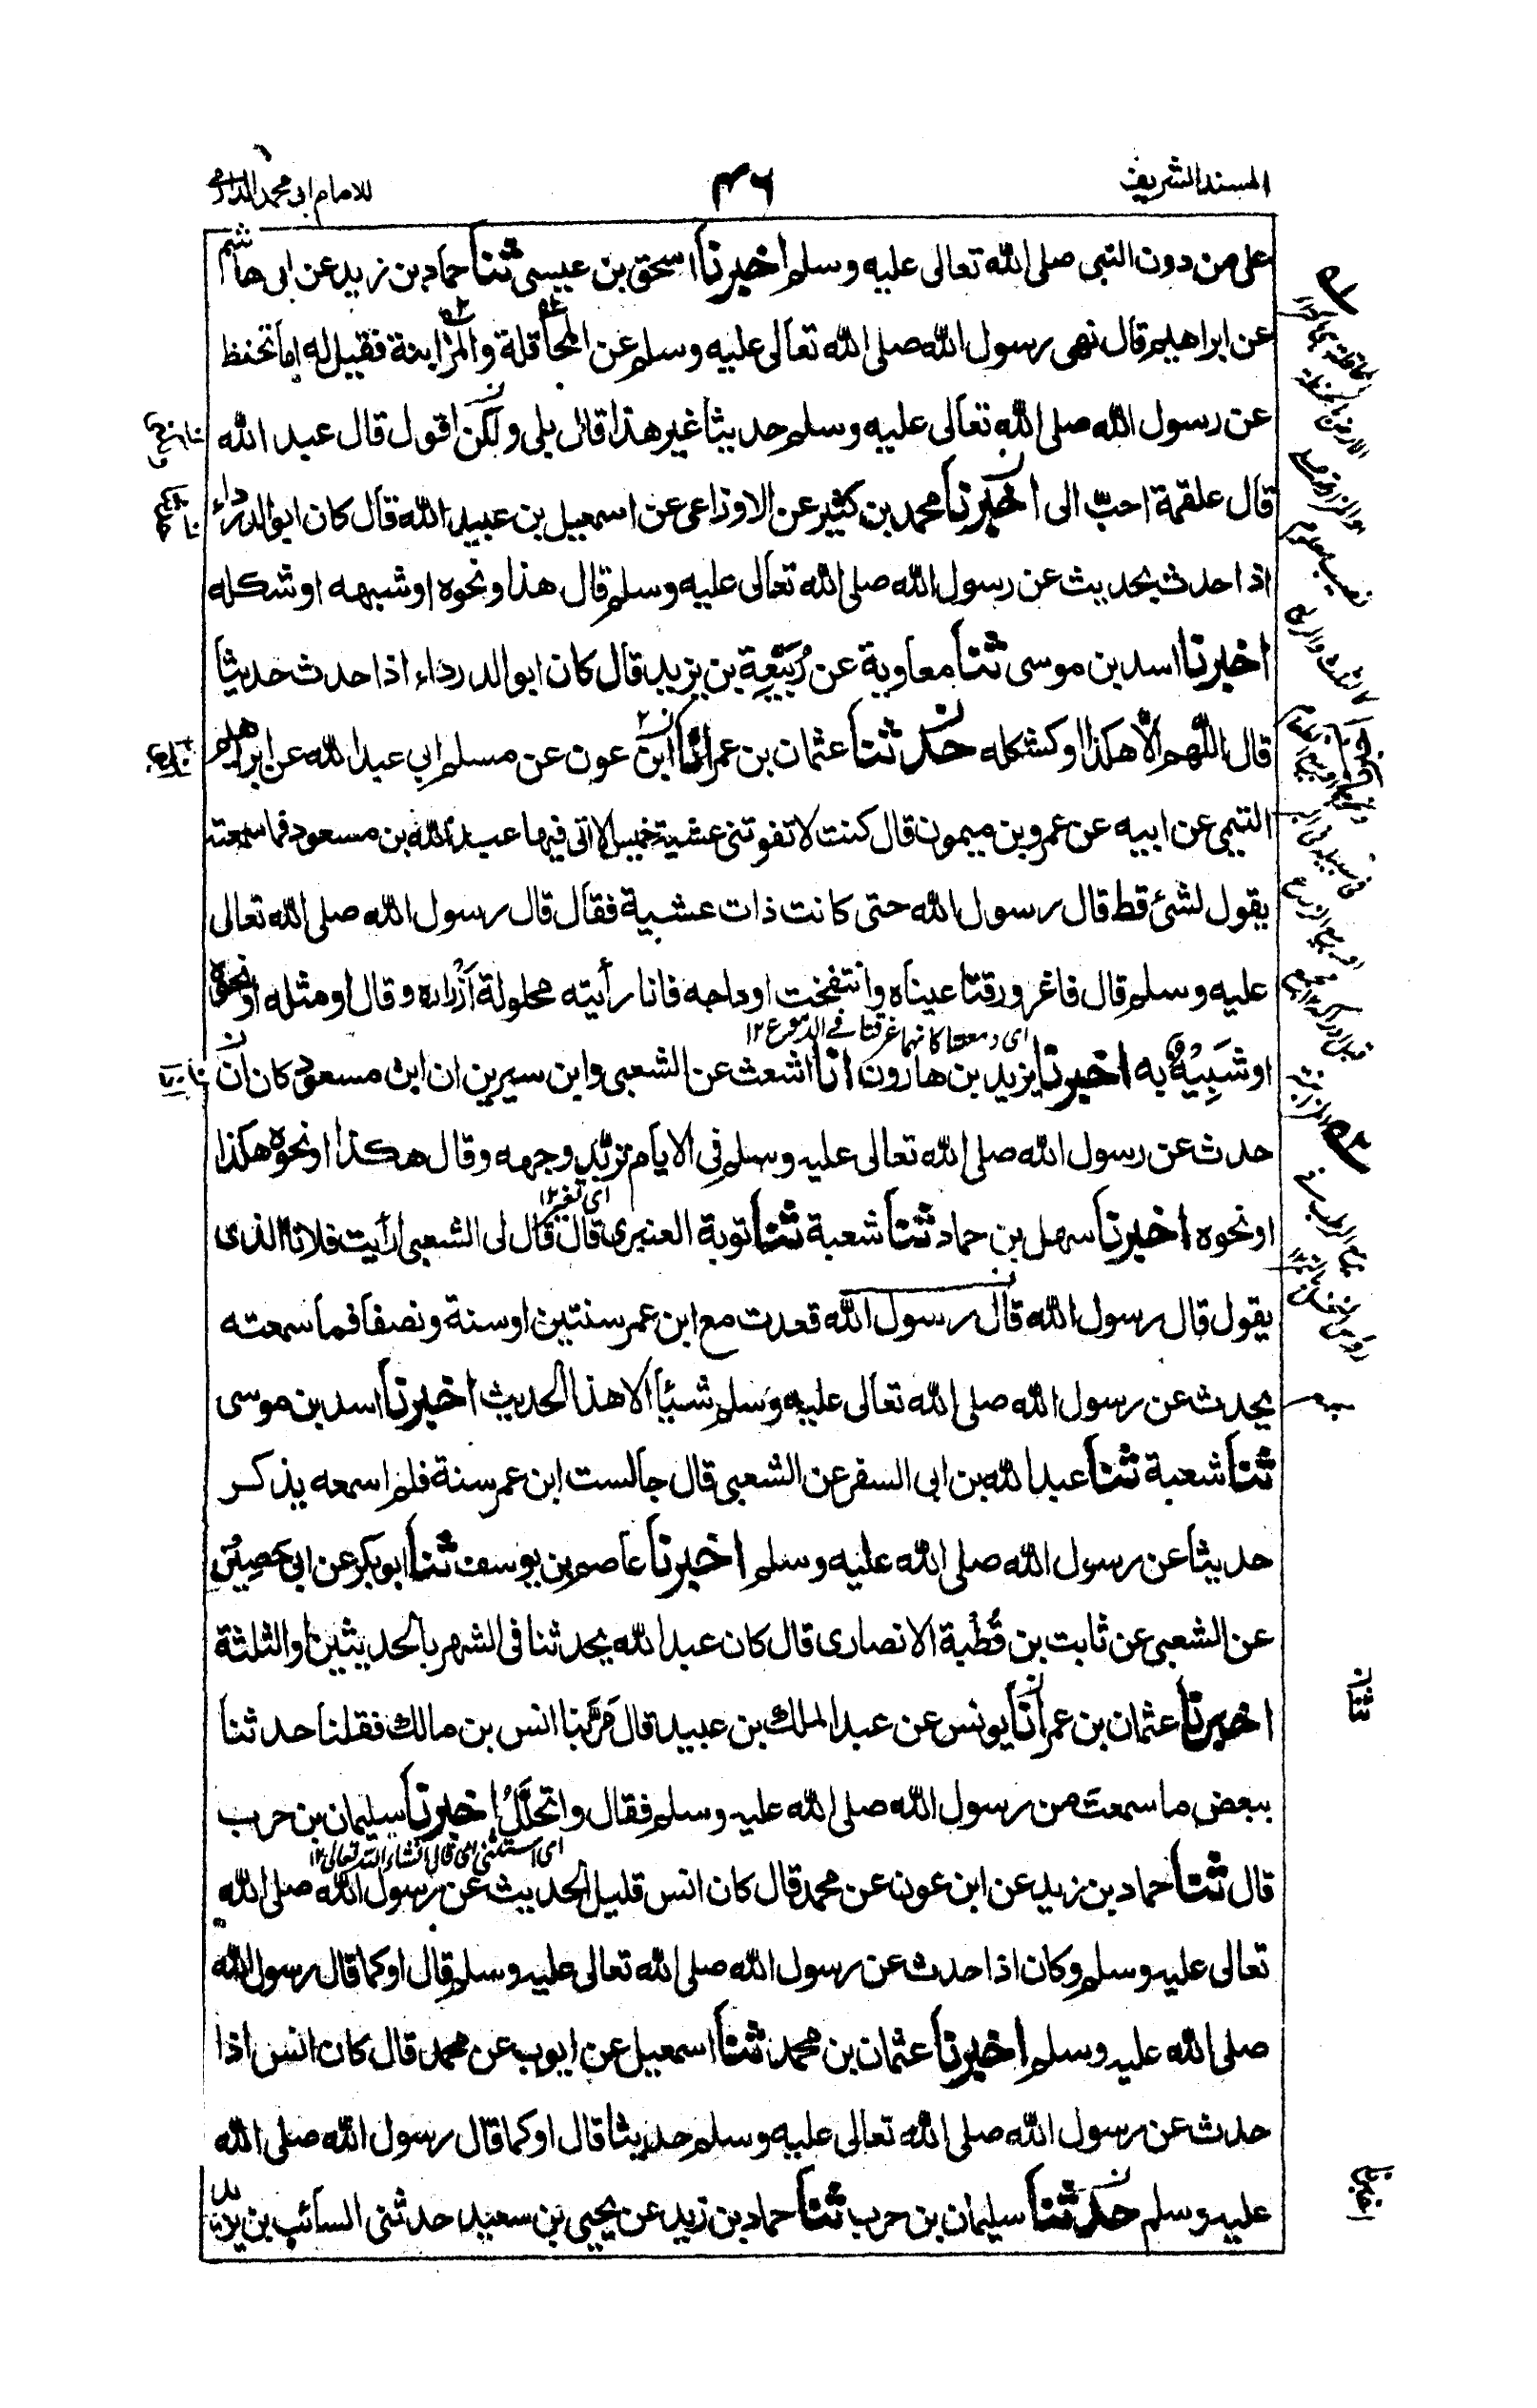 المسند الشريف
٤٦
للامام ابى محمد الدارمى
على من دون النبى صلى الله تعالى عليه وسلم اخبرنا اسحق بن عيسى ثنا حماد بن زيد عن ابى هاشم
عن ابراهيم قال نهى رسول الله صلى الله تعالى عليه وسلم عن المحاقلة والمزابنة فقيل له اما تحفظ
عن رسول الله صلى الله تعالى عليه وسلم حديثا غير هذا قال بلى ولكن اقول قال عبد الله
قال علقمة احبّ الى اخبرنا محمد بن كثير عن الاوزاعى عن اسمعيل بن عبيد الله قال كان ابو الدرداء
اذا حدث بحديث عن رسول الله صلى الله تعالى عليه وسلم قال هذا ونحوه او شبهه او شكله
اخبرنا اسد بن موسى ثنا معاوية عن رَبِيْعة بن يزيد قال كان ابو الدرداء اذا حدث حديثا
قال اللّهم الّا هكذا او كشكله حدثنا عثمان بن عمر انا ابن عون عن مسلم ابي عبد الله عن ابراهيم
التيمى عن ابيه عن عمرو بن ميمون قال كنت لا تفوتنى عشية خميس الا اتى فيها عبد الله بن مسعود فما سمعته
يقول لشئ قط قال رسول الله حتى كانت ذات عشية فقال قال رسول الله صلى الله تعالى
عليه وسلم قال فاغرورقتا عيناه وانتفخت اوداجه فانا رأيته محلولة اَزْراره وقال او مثله او نحوه
اى دمعتا كانهما غرقتا فى الدموع ١٢
او شَبِيْهٌ به اخبرنا يزيد بن هارون انا اشعث عن الشعبى وابن سيرين ان ابن مسعود كان ان
حدث عن رسول الله صلى الله تعالى عليه وسلم فى الايام تربّد وجهه وقال هكذا او نحوه هكذا
اى تغير ١٢
او نحوه اخبرنا سهل بن حماد ثنا شعبة ثنا توبة العنبرى قال قال لى الشعبى ارأيت فلانا الذى
يقول قال رسول الله قال رسول الله قعدت مع ابن عمر سنتين او سنة ونصفا فما سمعته
يحدث عن رسول الله صلى الله تعالى عليه وسلم شيئا الا هذا الحديث اخبرنا اسد بن موسى
ثنا شعبة ثنا عبد الله بن ابى السفر عن الشعبى قال جالست ابن عمر سنة فلم اسمعه يذكر
حديثا عن رسول الله صلى الله عليه وسلم اخبرنا عاصم بن يوسف ثنا ابو بكر عن ابى حَصِيْن
عن الشعبى عن ثابت بن قُطْبة الانصارى قال كان عبد الله يحدثنا فى الشهر بالحديثين او الثلثة
اخبرنا عثمان بن عمر انا يونس عن عبد الملك بن عبيد قال مَرَّ بنا انس بن مالك فقلنا حدثنا
ببعض ما سمعتَ من رسول الله صلى الله عليه وسلم فقال واتحلَّلُ اخبرنا سليمان بن حرب
اى استثنى اى قال انشاء الله تعالى ١٢
قال ثنا حماد بن زيد عن ابن عون عن محمد قال كان انس قليل الحديث عن رسول الله صلى الله
تعالى عليه وسلم وكان اذا حدث عن رسول الله صلى الله تعالى عليه وسلم قال او كما قال رسول الله
صلى الله عليه وسلم اخبرنا عثمان بن محمد ثنا اسمعيل عن ايوب عن محمد قال كان انس اذا
حدث عن رسول الله صلى الله تعالى عليه وسلم حديثا قال او كما قال رسول الله صلى الله
عليه وسلم حدثنا سليمان بن حرب ثنا حماد بن زيد عن يحيى بن سعيد حدثنى السائب بن يزيد